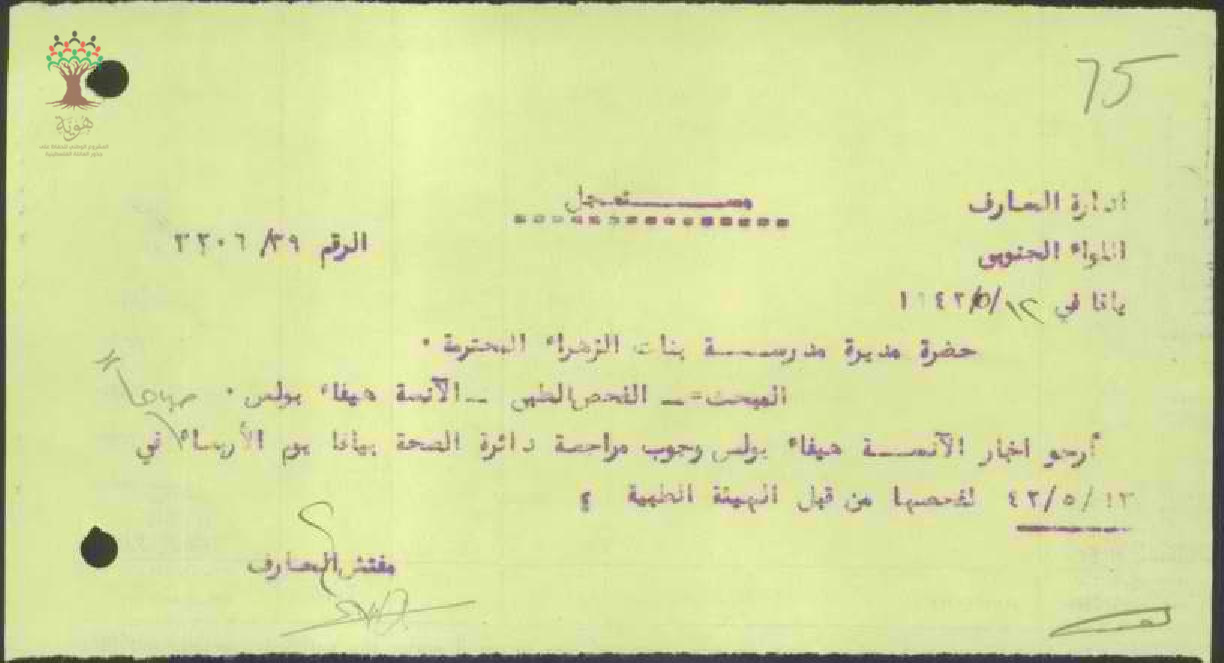 75
هوية
المشروع الوطني للحفاظ على
جذور العائلة الفلسطينية
مستعجل
ادارة المعارف
اللواء الجنوبي
الرقم ٣٩/ ٣٣٠٦
يافا في ١٢/٥/١٩٤٢
حضرة مديرة مدرسة بنات الزهراء المحترمة .
المبحث :- الفحص الطبي - الآنسة هيفاء بولس .
صباحا
أرجو اخبار الآنسة هيفاء بولس وجوب مراجعة دائرة الصحة بيافا يوم الأربعاء في
١٣/٥/٤٢ لفحصها من قبل الهيئة الطبية ؟
مفتش المعارف